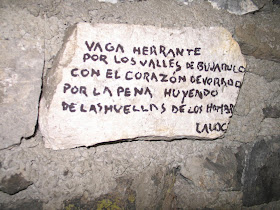 VAGA HERRANTE
POR LOS VALLES DE BUJARUELO
CON EL CORAZÓN DEVORADO
POR LA PENA HUYENDO
DE LAS HUELLAS DE LOS HOMBR